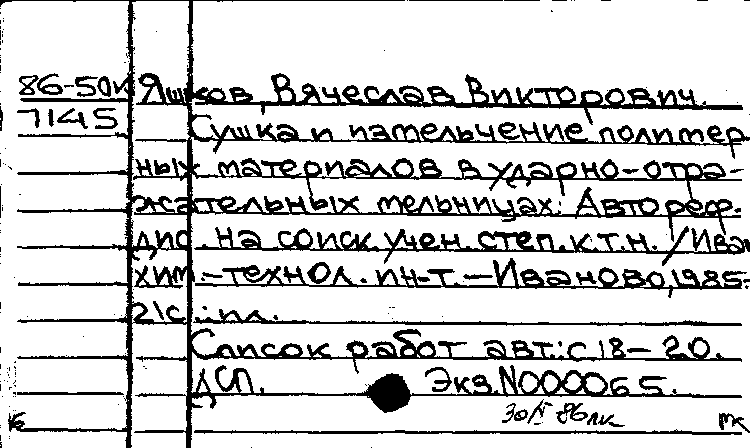 86-50к Яшков, Вячеслав Викторович.
7145 Сушка и измельчение полимер
ных материалов в ударно-отра-
жательных мельницах: Автореф.
дис. на соиск. учен. степ. к.т.н. / Иван
хим.-технол. ин-т. - Иваново, 1985-
21с.: ил.
Список работ авт.: с 18-20.
ДСП. Экз. N000065.